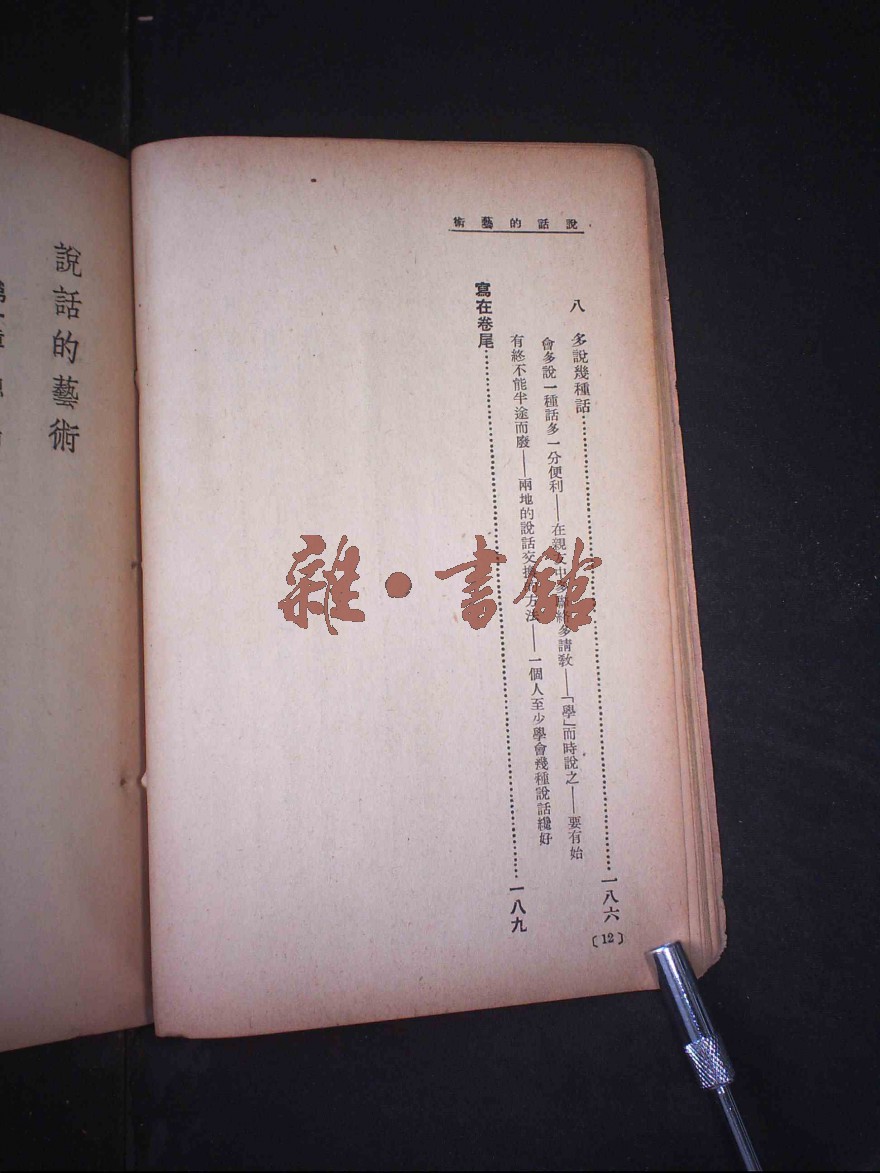 說話的藝術
八 多說幾種話……一八六
會多說一種話多一分便利——在親友中多聯絡多請教——「學」而時說之——要有始
有終不能半途而廢——兩地的說話交換的方法——一個人至少學會幾種說話纔好
寫在卷尾……一八九
〔12〕
說話的藝術
雜·書館